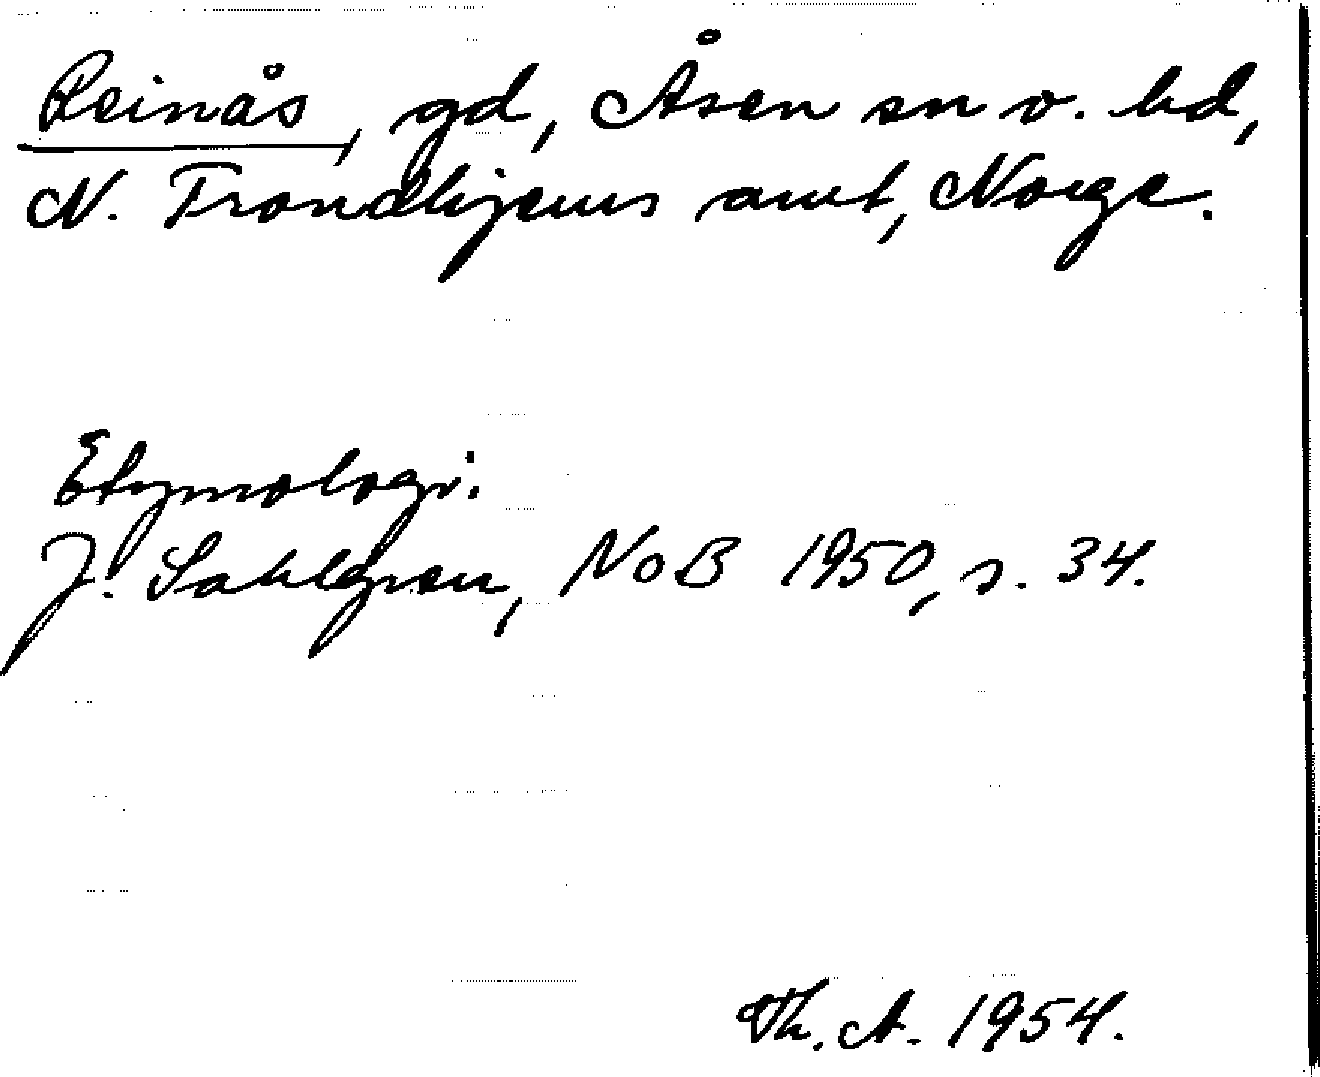 Reinås, gd, Åsen sn o. hd,
N. Trondhjems amt, Norge.
Etymologi.
J. Sahlgren, NoB 1950, s. 34.
Th. A. 1954.